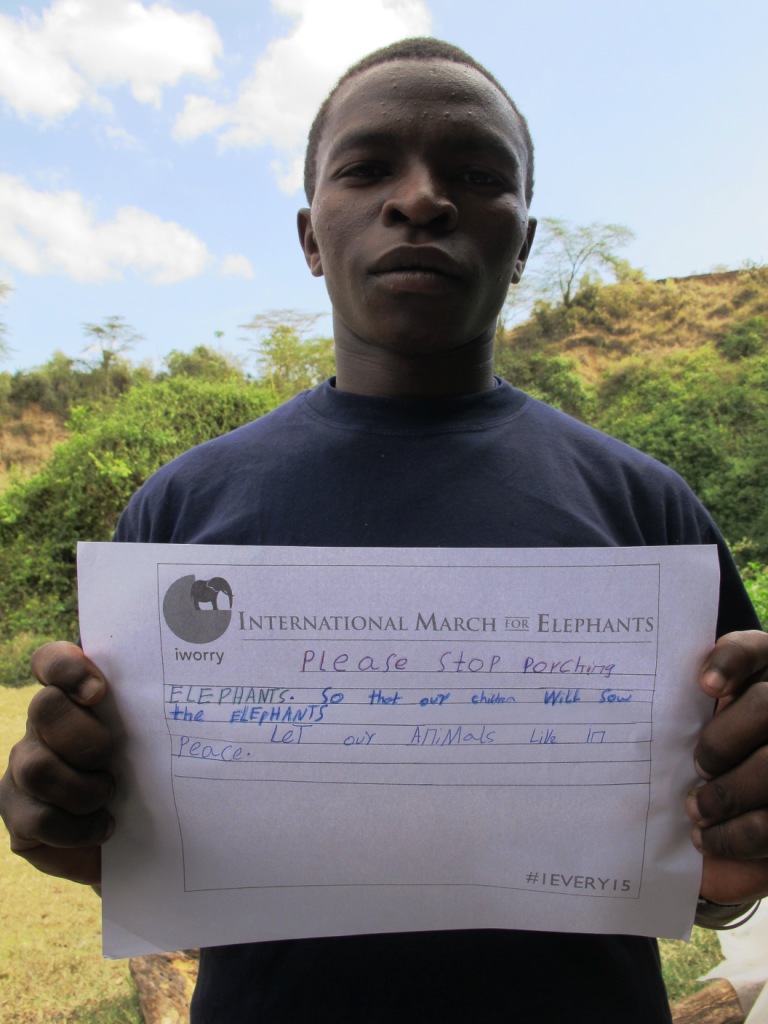 INTERNATIONAL MARCH FOR ELEPHANTS
iworry
Please stop porching
ELEPHANTS. So that our children Will sow
the ELEPHANTS
Peace. LeT our ANiMals Live In
#1EVERY15